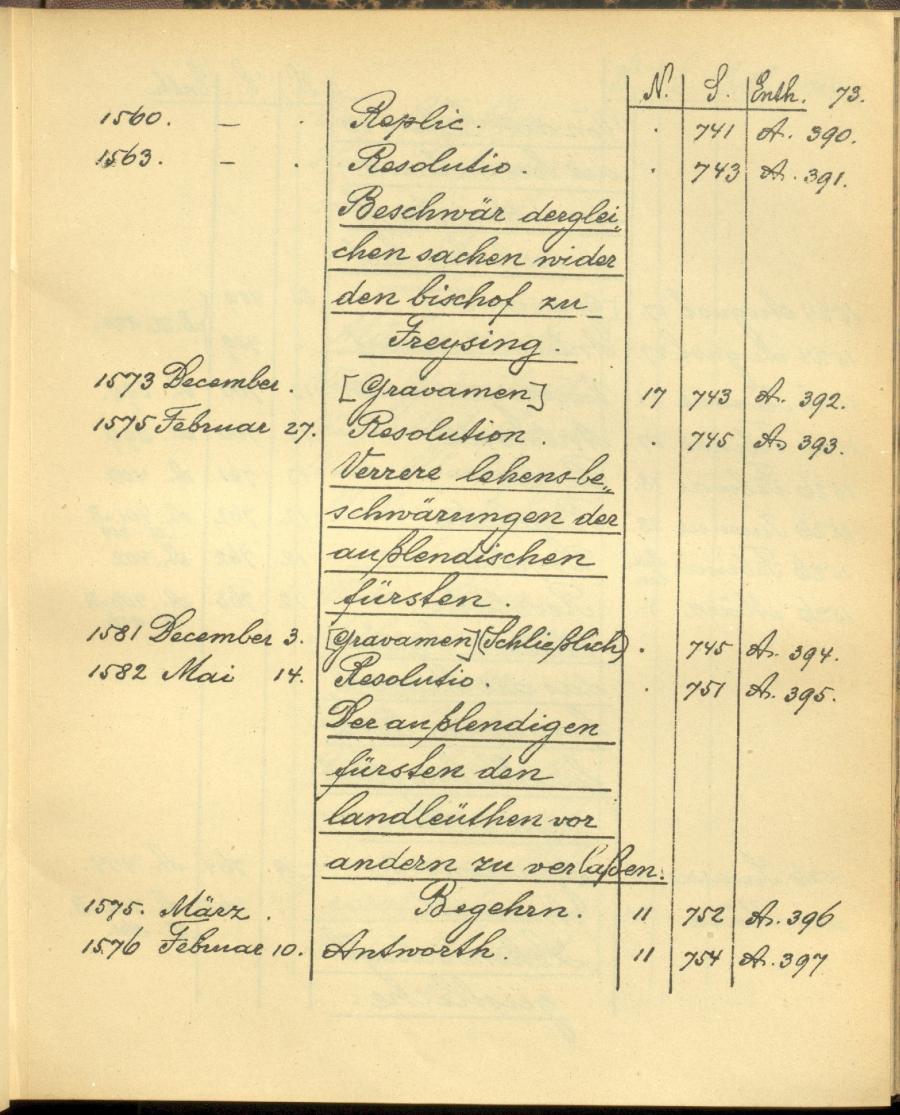 N. S. Enth. 73.
1560. — . Replic. . 741 A. 390.
1563. — . Resolutio. . 743 A. 391.
Beschwär derglei„
chen sachen wider
den bischof zu
Freysing.
1573 December. [Gravamen] 17 743 A. 392.
1575 Februar 27. Resolution . 745 A. 393.
Verrere lehensbe„
schwärungen der
außlendischen
fürsten.
1581 December 3. [Gravamen] (Schließlich) . 745 A. 394.
1582 Mai 14. Resolutio. . 751 A. 395.
Der außlendigen
fürsten den
landleüthen vor
andern zu verlaßen.
1575. März. Begehrn. 11 752 A. 396
1576 Februar 10. Antworth. 11 754 A. 397